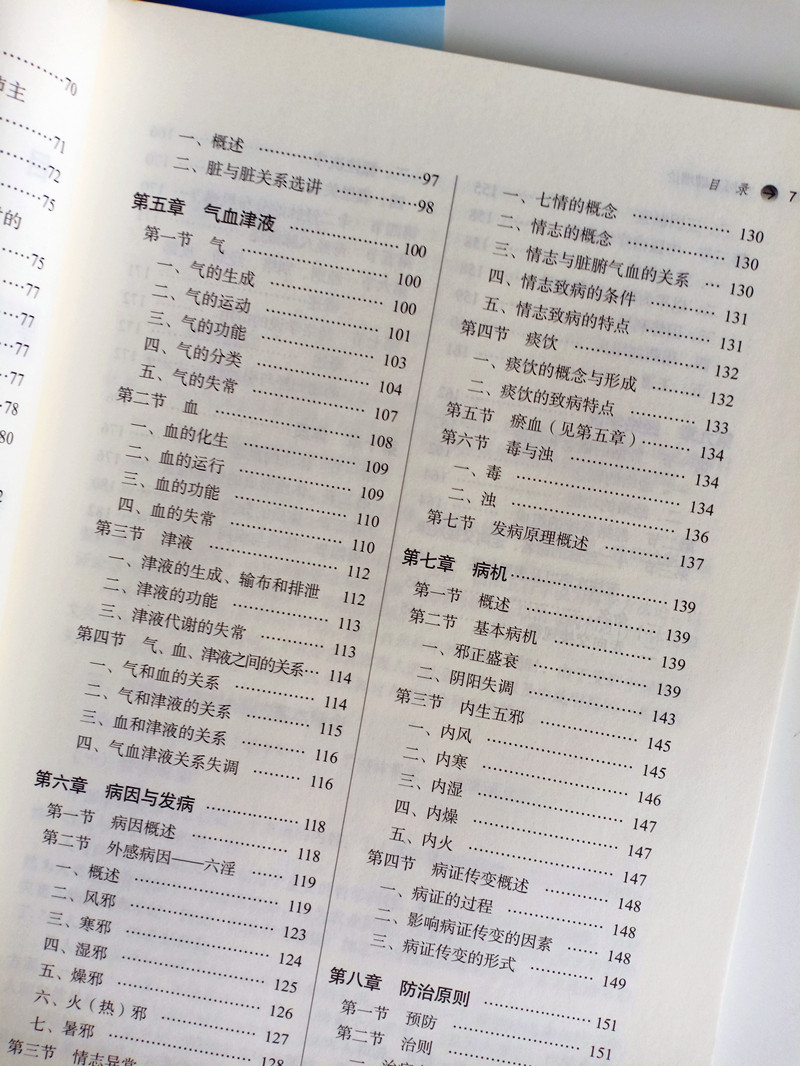 70
主
71
72
75
的
75
77
77
77
78
80
2
目 录 7
一、概述 97
二、脏与脏关系选讲 98
第五章 气血津液 100
第一节 气 100
一、气的生成 100
二、气的运动 101
三、气的功能 103
四、气的分类 104
五、气的失常 107
第二节 血 108
一、血的化生 109
二、血的运行 109
三、血的功能 110
四、血的失常 110
第三节 津液 112
一、津液的生成、输布和排泄 112
二、津液的功能 113
三、津液代谢的失常 113
第四节 气、血、津液之间的关系 114
一、气和血的关系 114
二、气和津液的关系 115
三、血和津液的关系 116
四、气血津液关系失调 116
第六章 病因与发病 118
第一节 病因概述 118
第二节 外感病因——六淫 119
一、概述 119
二、风邪 123
三、寒邪 124
四、湿邪 125
五、燥邪 126
六、火（热）邪 127
七、暑邪 128
第三节 情志异常
一、七情的概念 130
二、情志的概念 130
三、情志与脏腑气血的关系 130
四、情志致病的条件 131
五、情志致病的特点 131
第四节 痰饮 132
一、痰饮的概念与形成 132
二、痰饮的致病特点 133
第五节 瘀血（见第五章） 134
第六节 毒与浊 134
一、毒 134
二、浊 136
第七节 发病原理概述 137
第七章 病机 139
第一节 概述 139
第二节 基本病机 139
一、邪正盛衰 139
二、阴阳失调 143
第三节 内生五邪 145
一、内风 145
二、内寒 146
三、内湿 147
四、内燥 147
五、内火 147
第四节 病证传变概述 148
一、病证的过程 148
二、影响病证传变的因素 148
三、病证传变的形式 149
第八章 防治原则 151
第一节 预防 151
第二节 治则